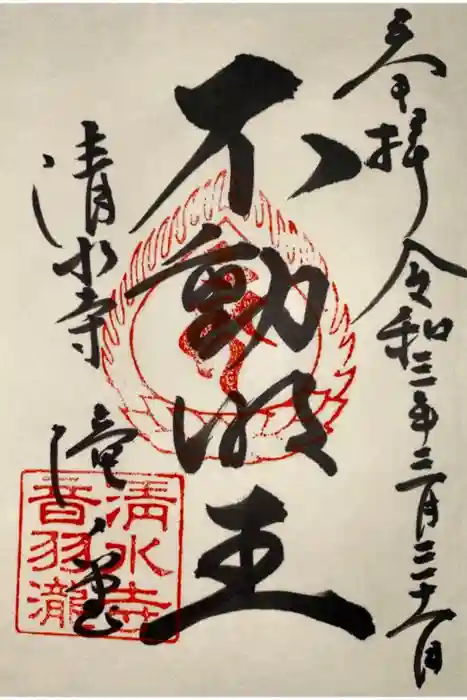 奉拝 令和三年三月三十一日
不動明王
清水寺 滝ノ堂
清水寺
音羽瀧